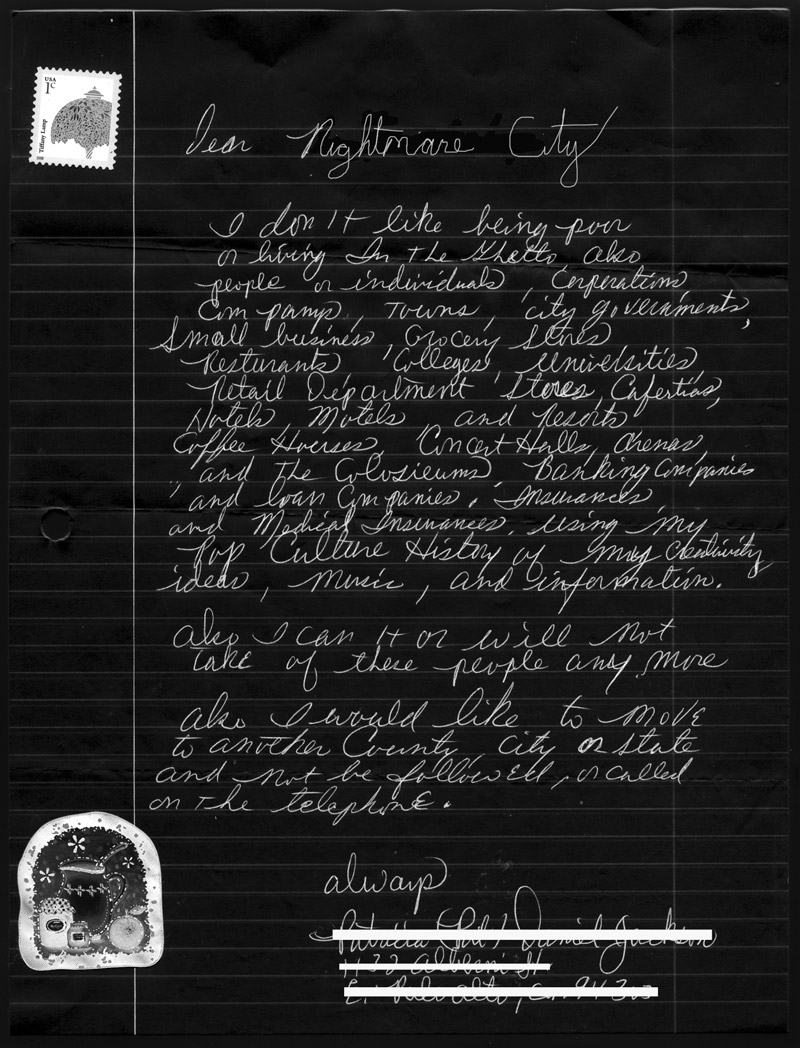 USA
1c
Tiffany Lamp
Dear Nightmare City
I don't like being poor
or living In The Ghetto, also
people or individuals, Corperations,
Compamp, Towns, city goveraments,
Small business, Grocery Stores
Resturants, Colleges, Universities,
Retail Department Stores, Cafertias,
Hotels Motels and Resorts
Coffee Houses, Concert Halls, Arenas,
and The Colosieums, Banking Companies
and loan Companies, Insurances
and Medical Insurances, using my
Pop Culture History of my creativity
ideas, music, and information.
also I can it or will not
take of these people any more
also I would like to move
to another County, city or state
and not be followed, or called
on The telephone.
always